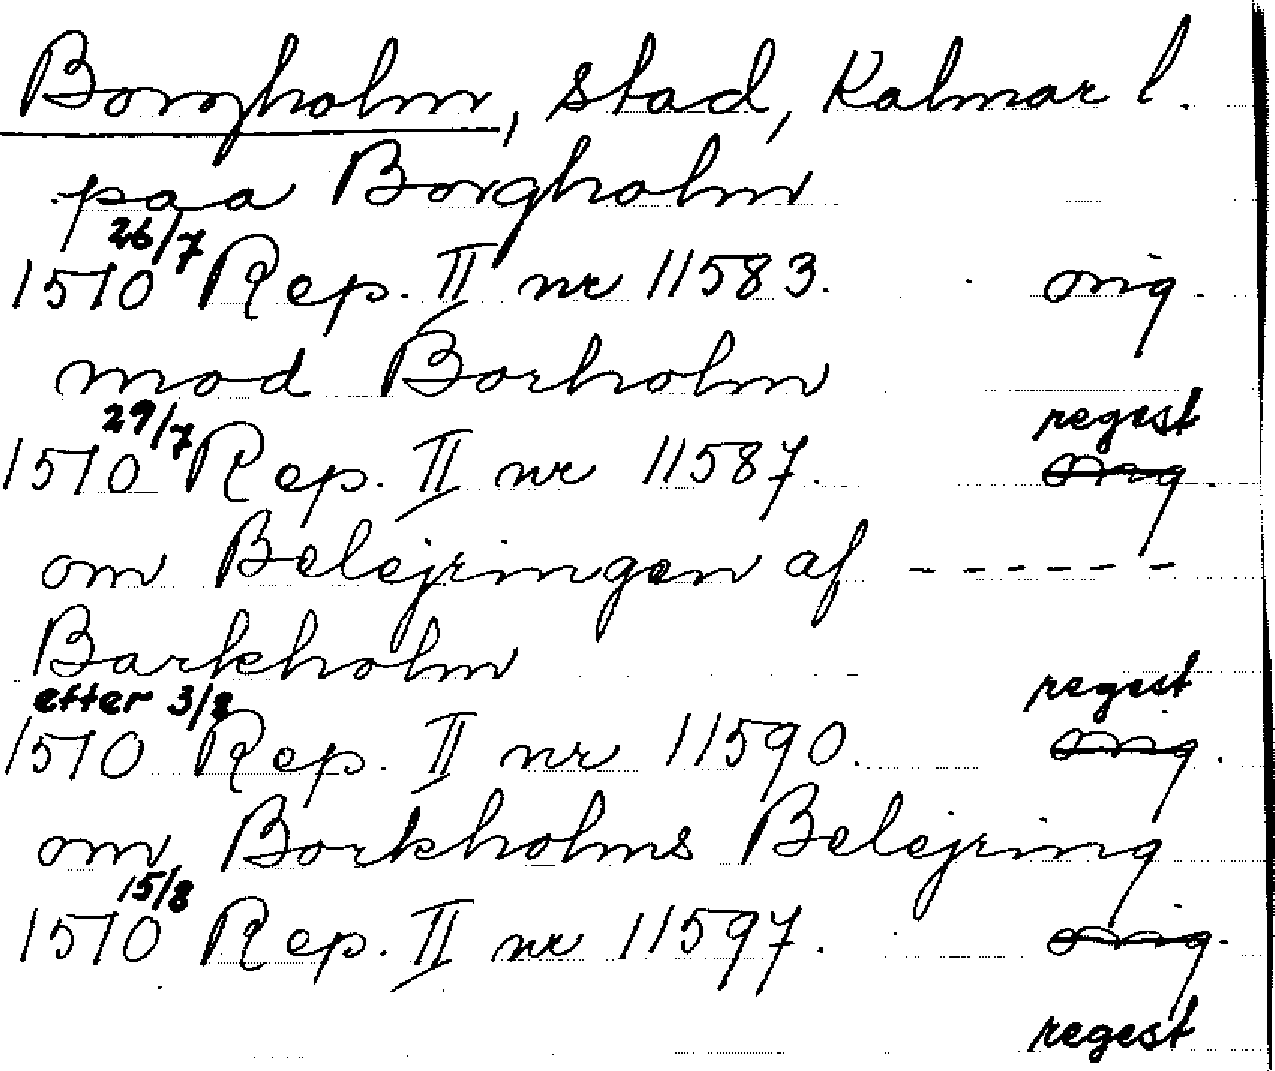 Borgholm, stad, Kalmar l.
paa Borgholm
26/7
1570 Rep. II nr 11583. orig.
mod Borholm
29/7 regest
1570 Rep. II nr 11587. orig.
om Belejringen af ------
Barkholm
efter 3/8 regest
1570 Rep. II nr 11590. orig.
om Borkholms Belejring
15/8
1570 Rep. II nr 11597. orig.
regest